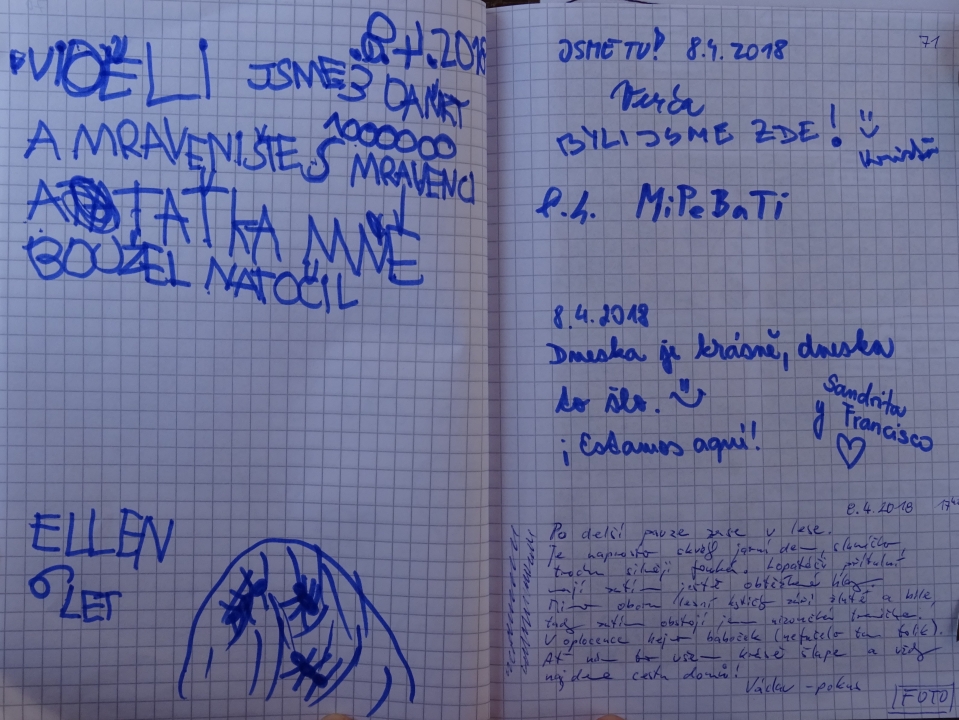 8.4.2018
VIDĚLI JSME 3 DAŇKY
A MRAVENIŠTĚ S 1000000 MRAVENCI
A TAŤKA MNĚ
BOUŽEL NATOČIL
ELLEN
6 LET
71
JSME TU! 8.4.2018
Verča
BYLI JSME ZDE!
8.4. MiPeBaTi
8.4.2018
Dneska je krásně, dneska
to šlo.
¡Estamos aquí!
Sandrita
y Francisco
8.4.2018
Po delší pauze zase v lese.
Je naprosto skvělý jarní den, sluníčko,
trochu silněji fouká.
mají zatím ještě
a bíle,
tady zatím
V oplocence
Ať nám to všem krásně šlape a vždy
najdeme cestu domů!
Václav - pokus
FOTO